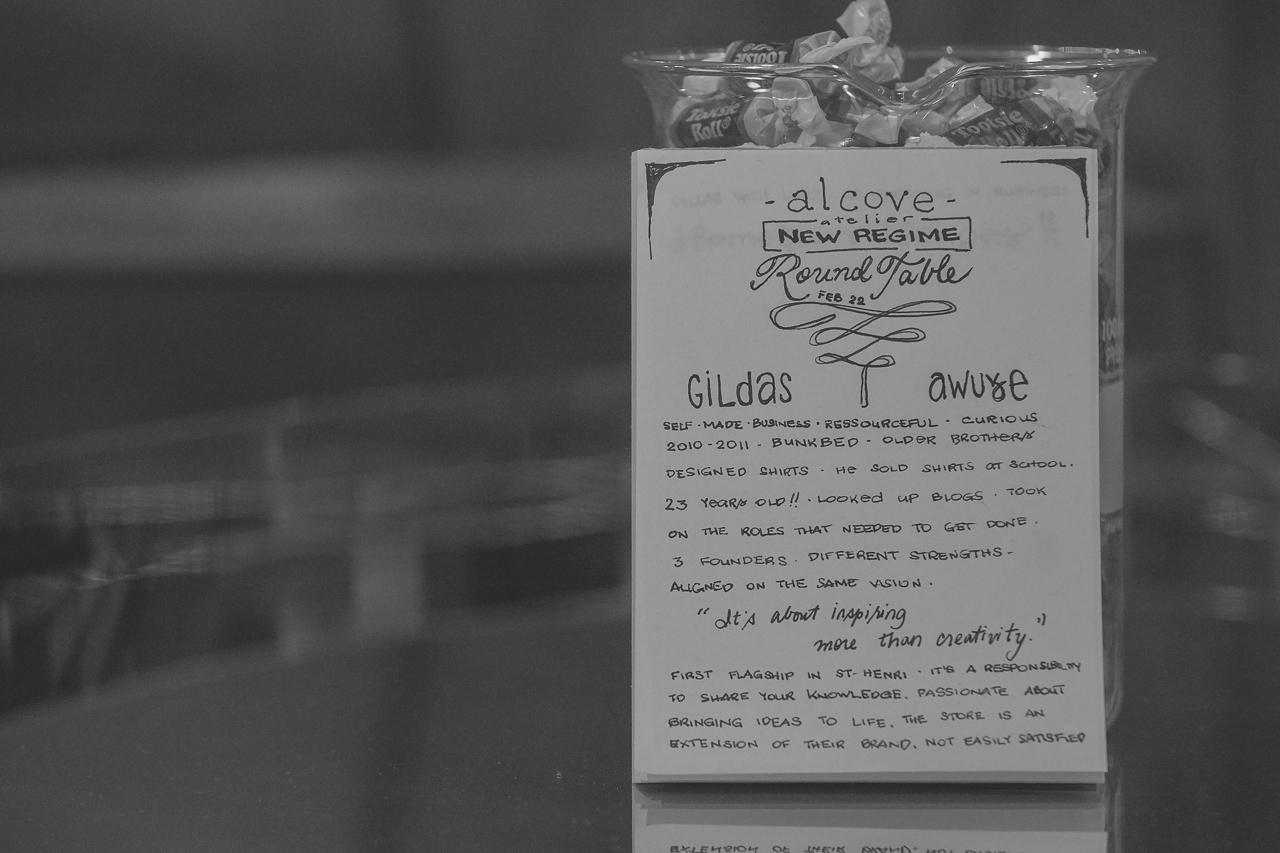 Tootsie
Roll
Tootsie
Roll
- alcove -
atelier
NEW REGIME
Round Table
FEB 22
GiLdas
awuye
SELF · MADE · BUSINESS · RESSOURCEFUL · CURIOUS
2010-2011 · BUNKBED · OLDER BROTHERS
DESIGNED SHIRTS · HE SOLD SHIRTS AT SCHOOL.
23 YEARS OLD!! · LOOKED UP BLOGS · TOOK
ON THE ROLES THAT NEEDED TO GET DONE.
3 FOUNDERS · DIFFERENT STRENGTHS -
ALIGNED ON THE SAME VISION.
"It's about inspiring
more than creativity."
FIRST FLAGSHIP IN ST-HENRI · IT'S A RESPONSIBILITY
TO SHARE YOUR KNOWLEDGE. PASSIONATE ABOUT
BRINGING IDEAS TO LIFE. THE STORE IS AN
EXTENSION OF THEIR BRAND. NOT EASILY SATISFIED